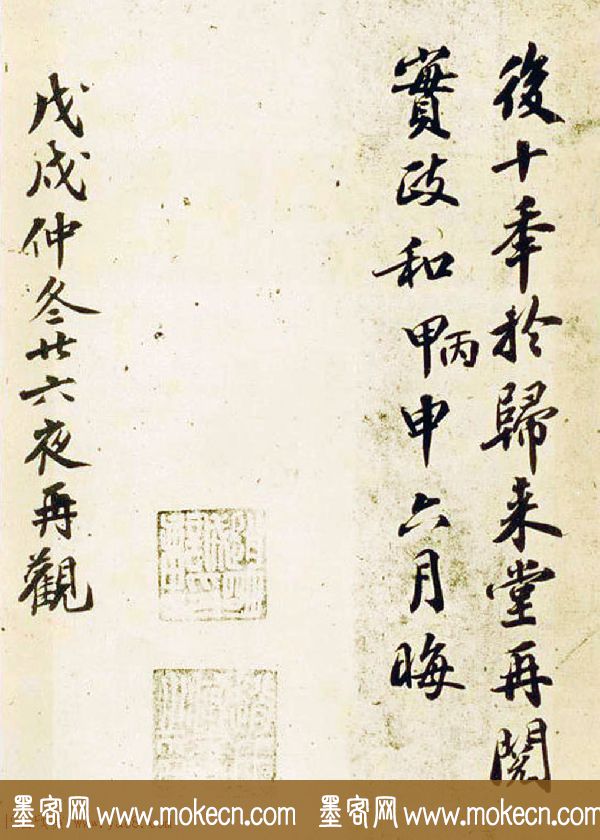 後十年於歸来堂再閱
實政和甲丙申六月晦
戊戌仲冬廿六夜再觀
墨客网 www.mokecn.com 墨客网 www.mokecn.com